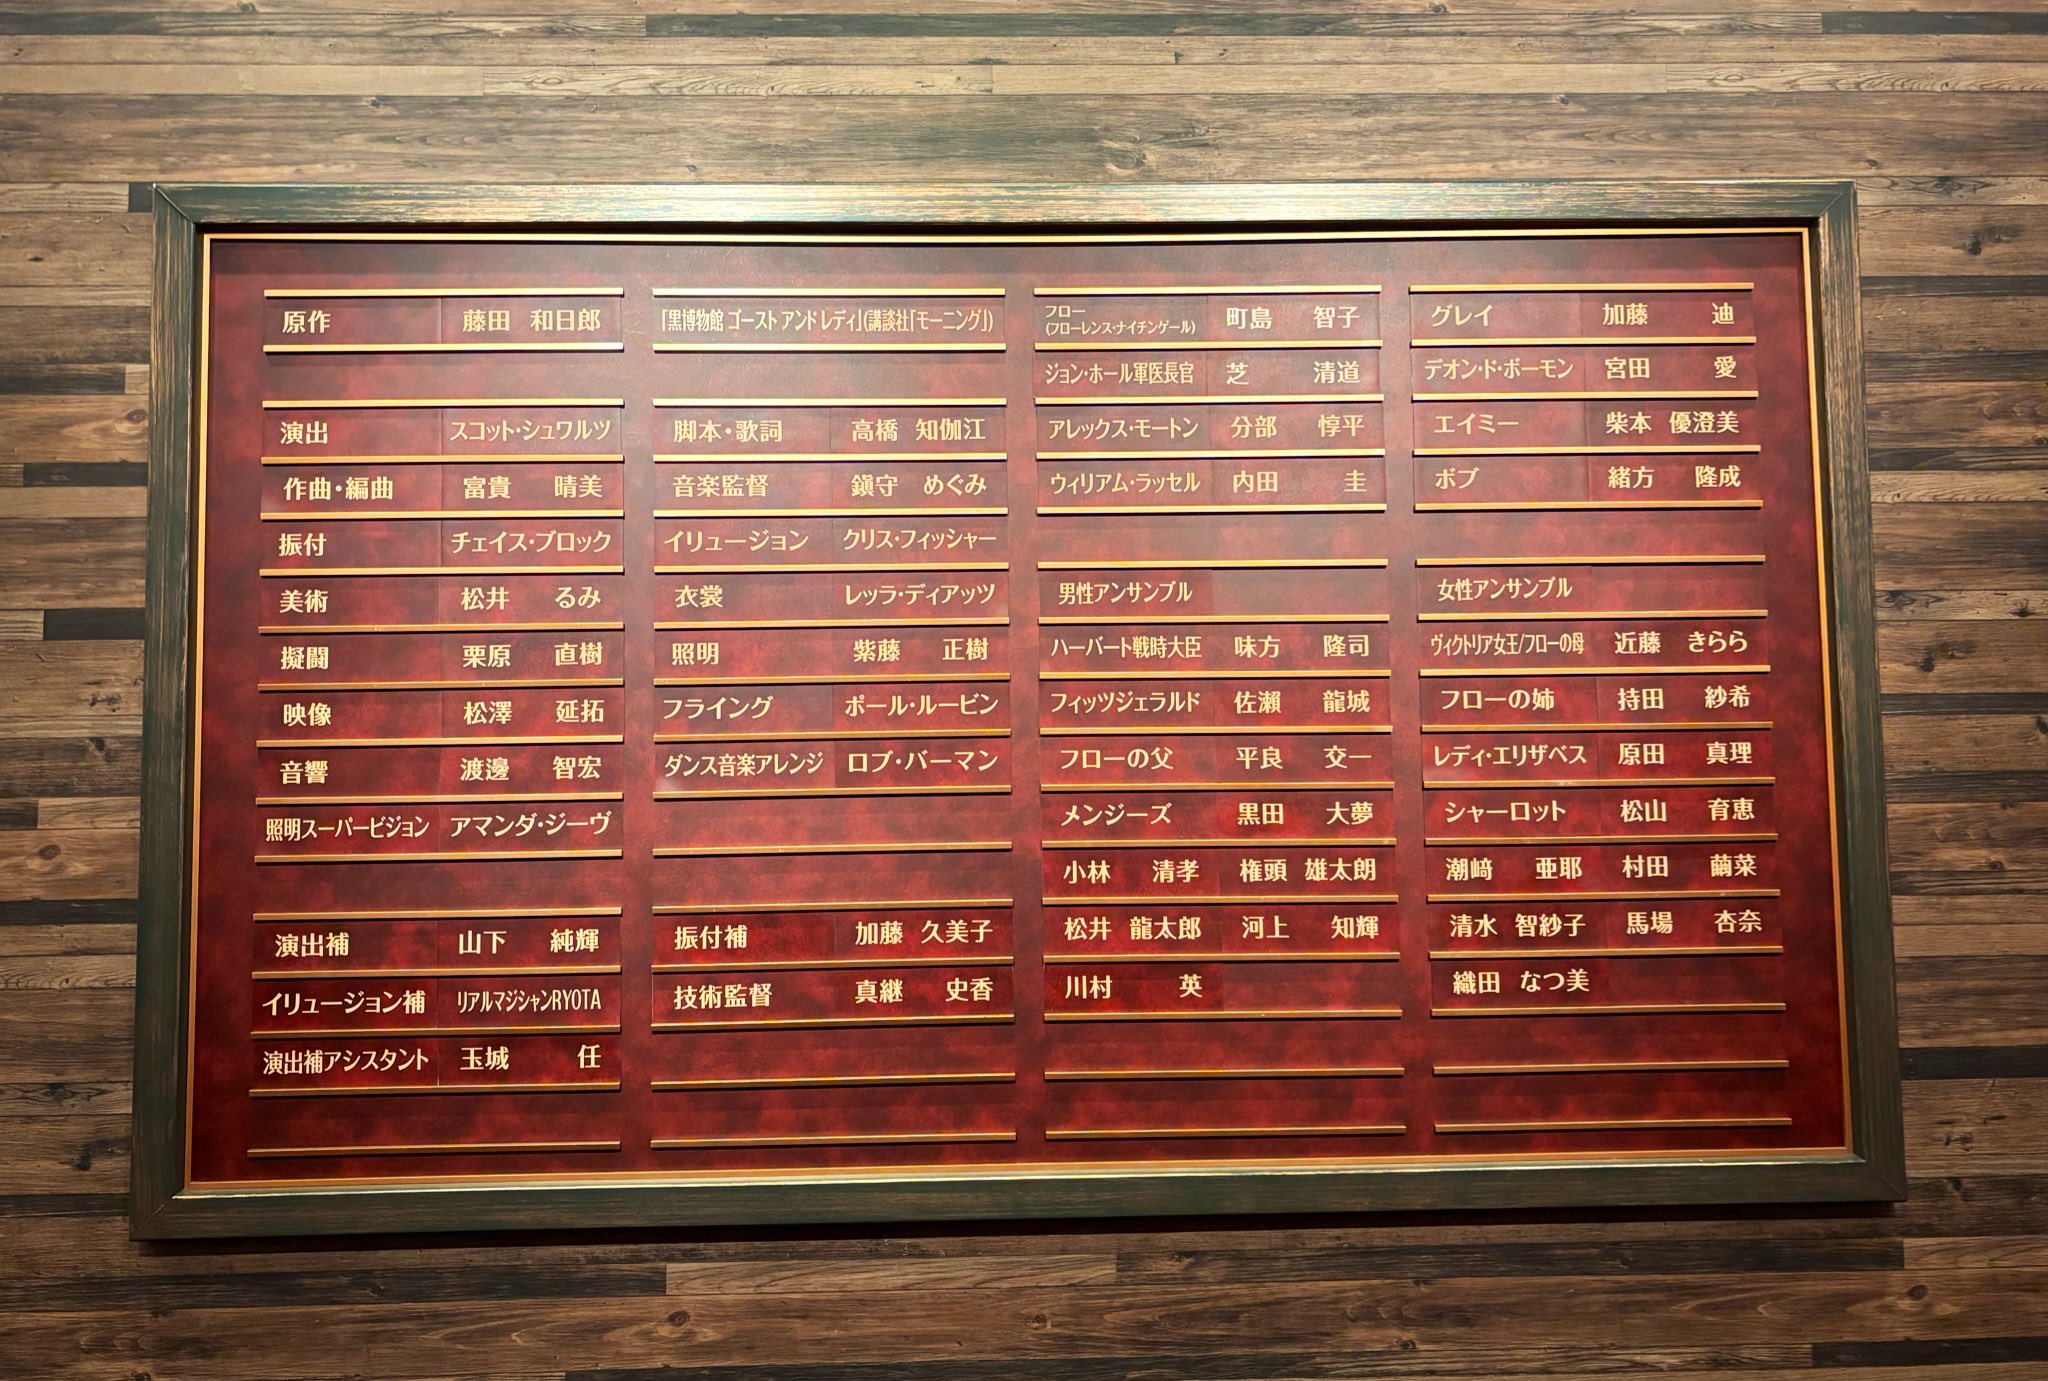 原作 藤田 和日郎
「黒博物館 ゴースト アンド レディ」(講談社「モーニング」)
演出 スコット・シュワルツ
脚本・歌詞 高橋 知伽江
作曲・編曲 富貴 晴美
音楽監督 鎭守 めぐみ
振付 チェイス・ブロック
イリュージョン クリス・フィッシャー
美術 松井 るみ
衣裳 レッラ・ディアッツ
擬闘 栗原 直樹
照明 紫藤 正樹
映像 松澤 延拓
フライング ポール・ルービン
音響 渡邉 智宏
ダンス音楽アレンジ ロブ・バーマン
照明スーパービジョン アマンダ・ジーヴ
演出補 山下 純輝
振付補 加藤 久美子
イリュージョン補 リアルマジシャンRYOTA
技術監督 真継 史香
演出補アシスタント 玉城 任
フロー
(フローレンス・ナイチンゲール) 町島 智子
グレイ 加藤 迪
ジョン・ホール軍医長官 芝 清道
デオン・ド・ボーモン 宮田 愛
アレックス・モートン 分部 惇平
エイミー 柴本 優澄美
ウィリアム・ラッセル 内田 圭
ボブ 緒方 隆成
男性アンサンブル
女性アンサンブル
ハーバート戦時大臣 味方 隆司
ヴィクトリア女王/フローの母 近藤 きらら
フィッツジェラルド 佐瀬 龍城
フローの姉 持田 紗希
フローの父 平良 交一
レディ・エリザベス 原田 真理
メンジーズ 黒田 大夢
シャーロット 松山 育恵
小林 清孝 権頭 雄太朗
潮﨑 亜耶 村田 繭菜
松井 龍太郎 河上 知輝
清水 智紗子 馬場 杏奈
川村 英
織田 なつ美